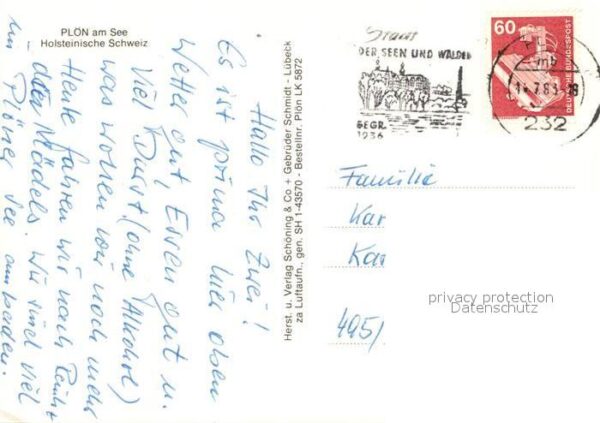 PLÖN am See
Holsteinische Schweiz
Hallo Ihr Zwei!
Es ist prima hier oben
Wetter gut, Essen gut u.
viel Durst (ohne Alkohol)
was wollen wir noch mehr
Heute fahren wir nach
den Mädels. Wir sind viel
im Plöner See am baden.
Herst. u. Verlag Schöning & Co + Gebrüder Schmidt - Lübeck
za Luftaufn., gen. SH 1-43570 - Bestellnr. Plön LK 5872
Stadt
DER SEEN UND WÄLDER
GEGR.
1236
60
DEUTSCHE BUNDESPOST
232
Familie
Kar
Kar
495/
privacy protection
Datenschutz